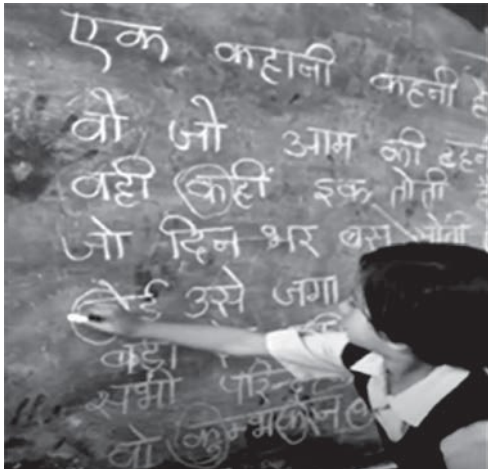 एक कहानी कहनी है
वो जो आम की टहनी
वहीं कहीं इक तोती
जो दिन भर बस सोती
कोई उसे जगा
सभी
वो कुम्भकरन